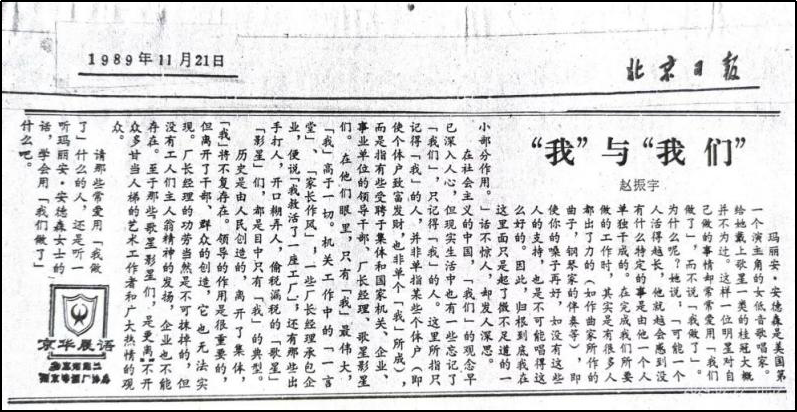 1989年11月21日
北京日报
“我”与“我们”
赵振宇
玛丽安·安德森是美国第
一个演主角的女低音歌唱家。
给她戴上歌星一类的桂冠大概
并不为过。这样一位明星对自
己做的事情却常常爱用「我们
做了」，而不说「我做了」。
为什么呢？她说，「可能一个
人活得越长，他就越会感到没
有什么特定的事是由他一个人
单独干成的。在完成我们所要
做的工作时，其实是有很多人
都出了力的（如作曲家所作的
曲子，钢琴家的伴奏等），即
使你的嗓子再好，如没有这些
人的支持，也是不可能唱得这
么好的。因此，归根到底我在
这里面只是起了微不足道的一
小部分作用。」话不惊人，却发人深思。
在社会主义的中国，「我们」的观念早
已深入人心，但现实生活中也有一些忘记了
「我们」，只记得「我」的人。这里所指只
记得「我」的人，并非单指某些个体户（即
使个体户致富发财，也非单个「我」所成），
而是指有些受聘于集体和国家机关、企业、
事业单位的领导干部、厂长经理、歌星影星
们。在他们眼里，只有「我」最伟大，
「我」高于一切。机关工作中的「一言
堂」、「家长作风」，一些厂长经理承包企
业，便说「我救活了一座工厂」；还有那些出
手打人、开口糊弄人，偷税漏税的「歌星」
「影星」们，都是目中只有「我」的典型。
历史是由人民创造的，离开了集体，
「我」将不复存在。领导的作用是很重要的，
但离开了干部、群众的创造，它也无法实
现。厂长经理的功劳当然是不可抹掉的，但
没有工人们主人翁精神的发扬，企业也不能
存在。至于那些歌星影星们，是更离不开
众多甘当人梯的艺术工作者和广大热情的观
众。
请那些常爱用「我做
了」什么的人，还是听一
听玛丽安·安德森女士的
话，学会用「我们做了」
什么吧。
京华晨语